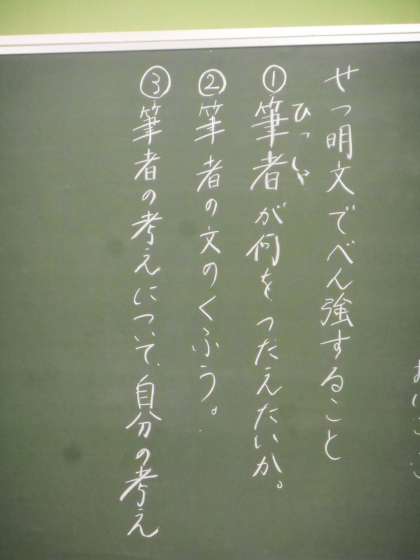 せつ明文でべん強すること
①筆者が何をつたえたいか。
ひっしゃ
②筆者の文のくふう。
③筆者の考えについて、自分の考え